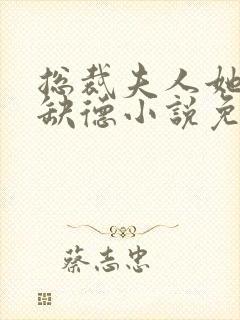 总裁夫人她
缺德小說免
蔡志忠